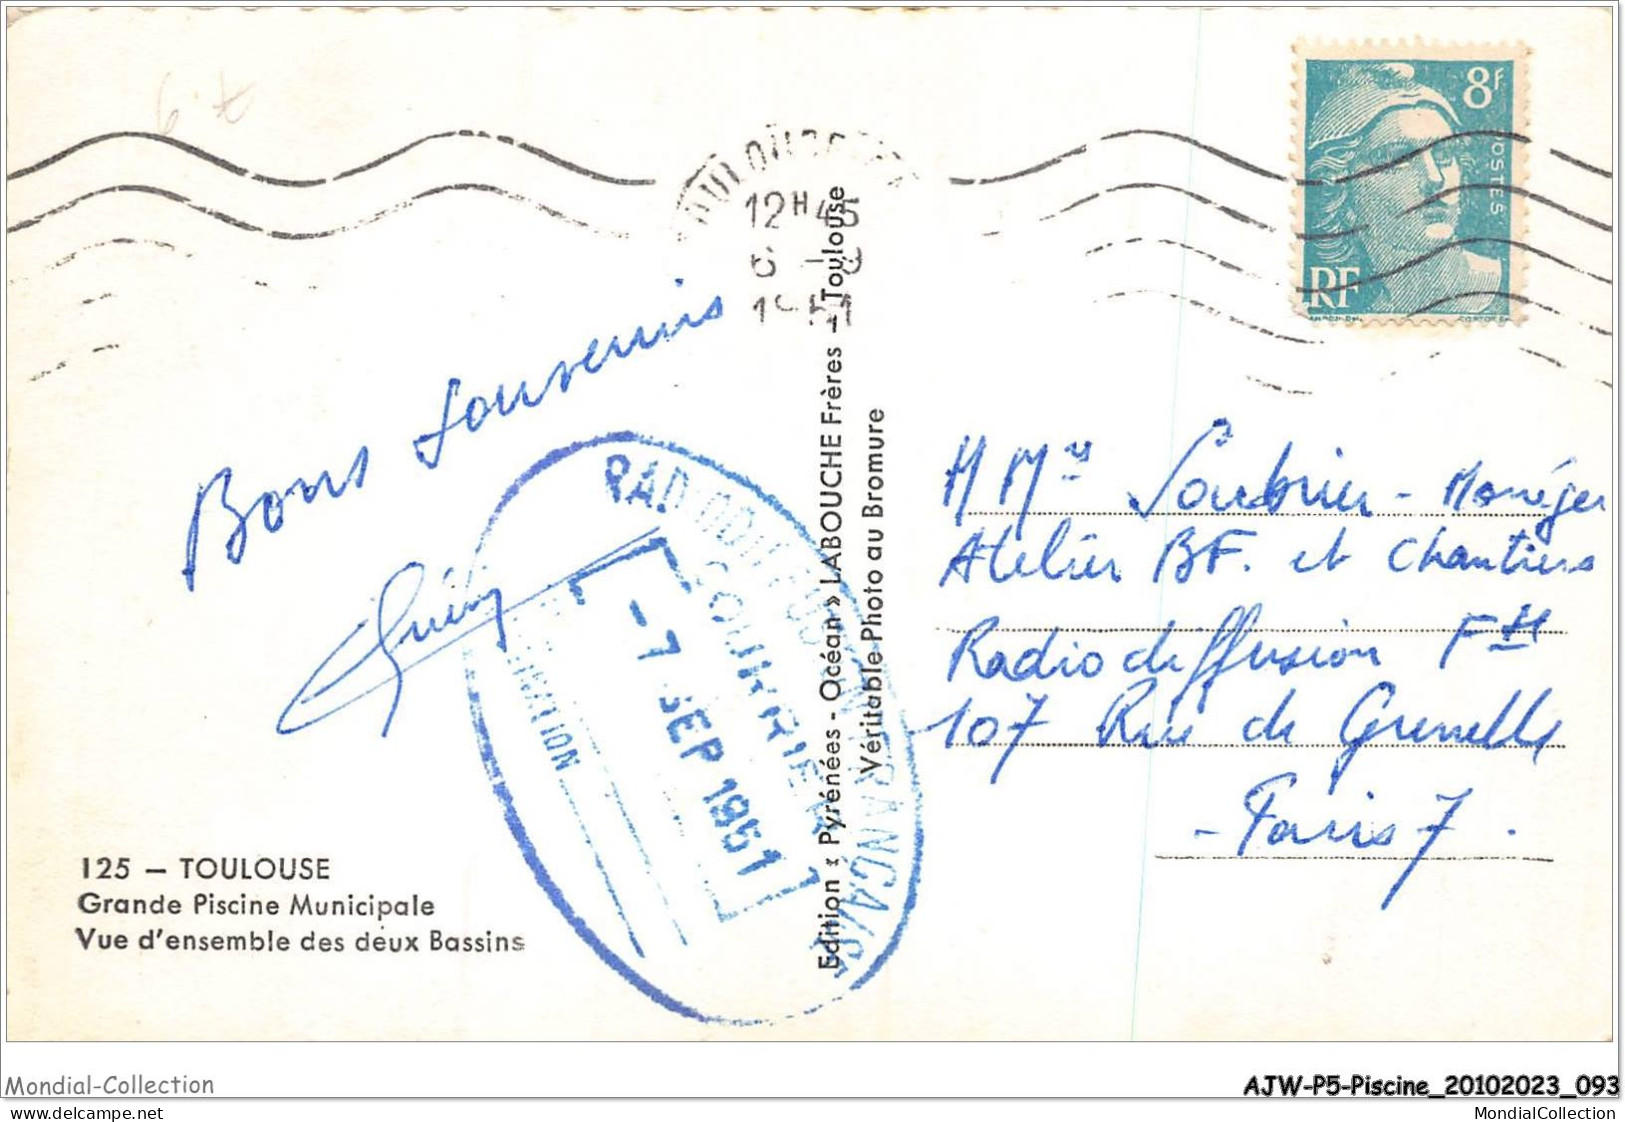 8F
POSTES
RF
12H45
6 -9
1951
Bons souvenirs
MMrs Soubrier - Monéger
Atelier BF. et Chantiers
Radio diffusion Fse
107 Rue de Grenelle
- Paris 7 .
RADIODIFFUSION FRANÇAISE
COURRIER
-7 SEP 1951
125 — TOULOUSE
Grande Piscine Municipale
Vue d'ensemble des deux Bassins
Edition « Pyrénées - Océan » LABOUCHE Frères - Toulouse
Véritable Photo au Bromure
Mondial-Collection
AJW-P5-Piscine_20102023_093
www.delcampe.net
MondialCollection